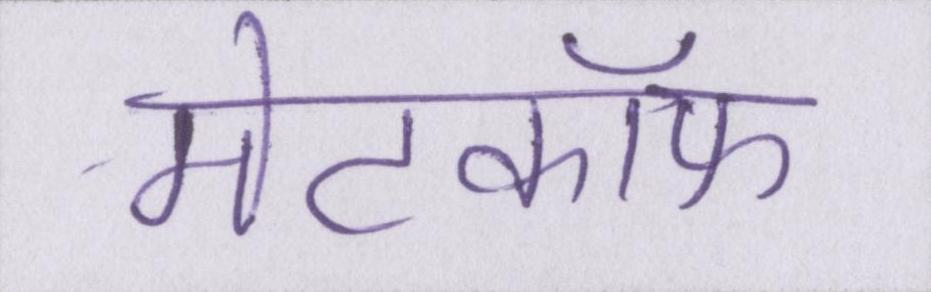 मेटकॉफ